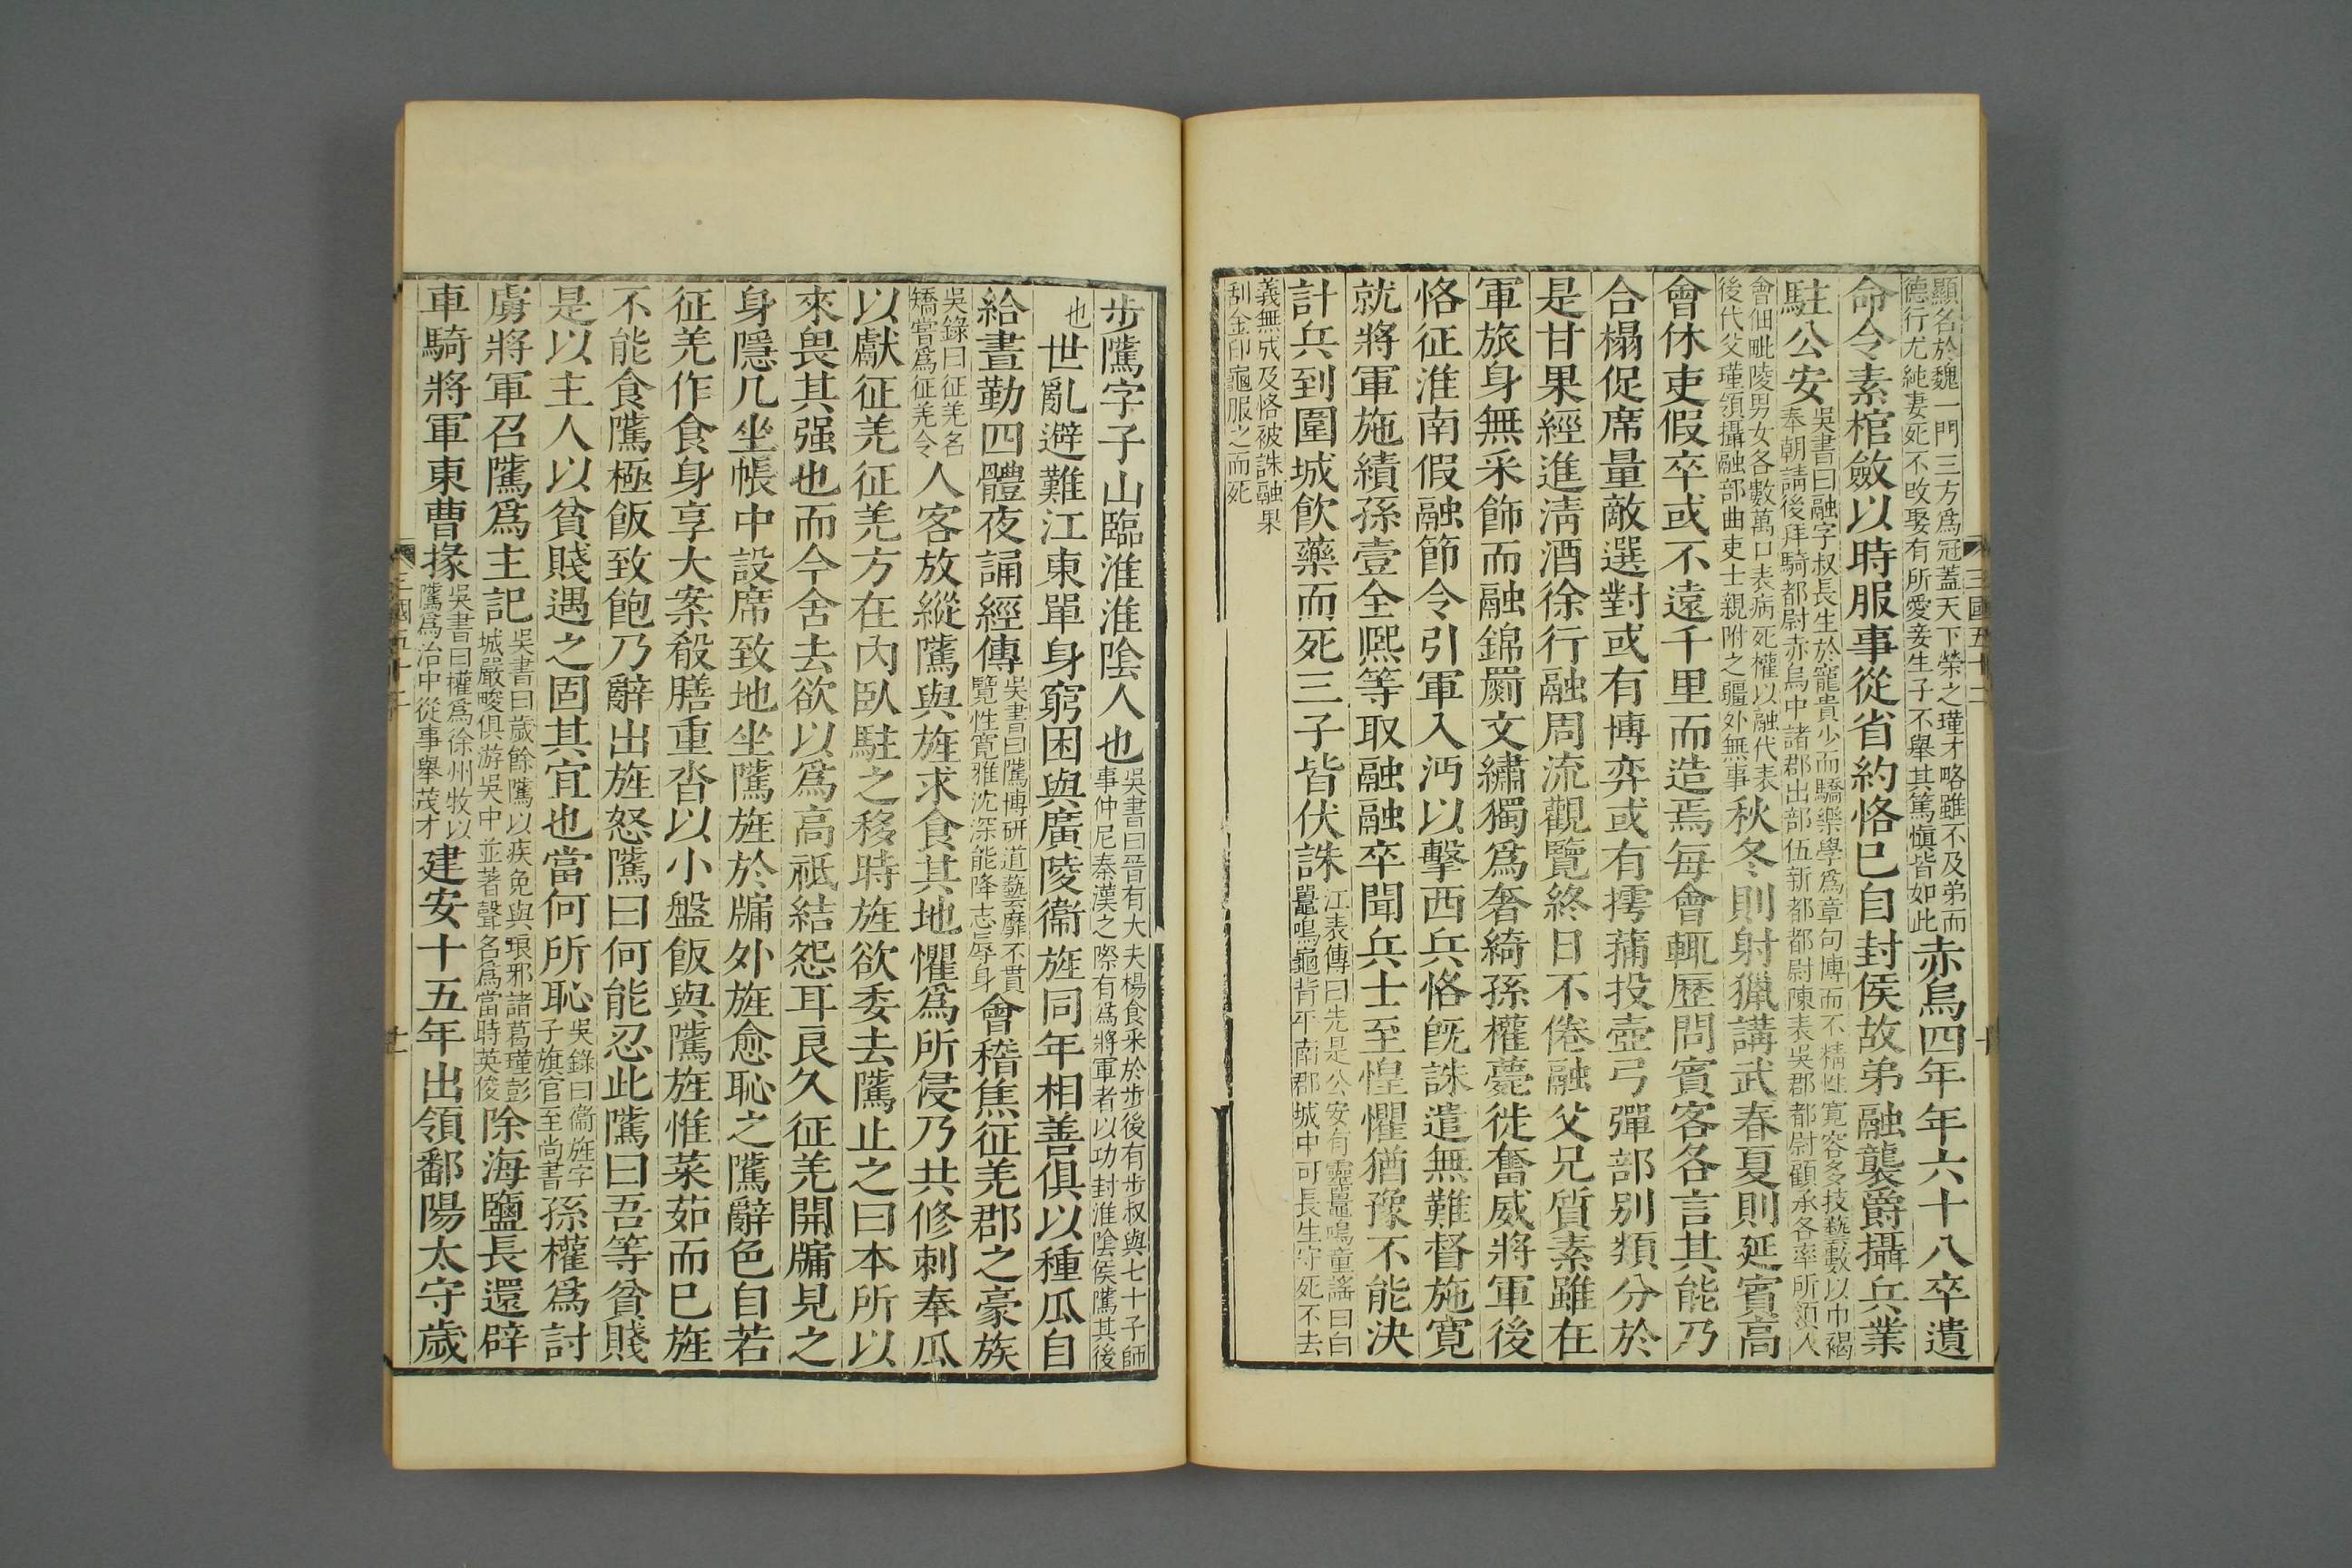 顯名於魏一門三方爲冠蓋天下榮之瑾才略雖不及弟而
德行尤純妻死不改娶有所愛妾生子不舉其篤愼皆如此
赤烏四年年六十八卒遺
命令素棺斂以時服事從省約恪已自封侯故弟融襲爵攝兵業
駐公安
吳書曰融字叔長生於寵貴少而驕樂學爲章句博而不精性寬容多技藝數以巾褐
奉朝請後拜騎都尉赤烏中諸郡出部伍新都都尉陳表吳郡都尉顧承各率所領人
會佃毗陵男女各數萬口表病死權以融代表
後代父瑾領攝融部曲吏士親附之疆外無事
秋冬則射獵講武春夏則延賓高
會休吏假卒或不遠千里而造焉每會輒歷問賓客各言其能乃
合榻促席量敵選對或有博弈或有摴蒱投壺弓彈部别類分於
是甘果經進淸酒徐行融周流觀覽終日不倦融父兄質素雖在
軍旅身無采飾而融錦罽文繡獨爲奢綺孫權薨徙奮威將軍後
恪征淮南假融節令引軍入沔以擊西兵恪旣誅遣無難督施寬
就將軍施績孫壹全熙等取融融卒聞兵士至惶懼猶豫不能決
計兵到圍城飮藥而死三子皆伏誅
江表傳曰先是公安有靈鼉鳴童謠曰白
鼉鳴龜背平南郡城中可長生守死不去
義無成及恪被誅融果
刮金印龜服之而死
三國五十二
十
步騭字子山臨淮淮陰人也
吳書曰晉有大夫楊食采於步後有步叔與七十子師
事仲尼秦漢之際有爲將軍者以功封淮陰侯騭其後
也
世亂避難江東單身窮困與廣陵衞旌同年相善俱以種瓜自
給晝勤四體夜誦經傳
吳書曰騭博研道藝靡不貫
覽性寬雅沈深能降志辱身
會稽焦征羌郡之豪族
吳錄曰征羌名
矯嘗爲征羌令
人客放縱騭與旌求食其地懼爲所侵乃共修刺奉瓜
以獻征羌征羌方在內臥駐之移時旌欲委去騭止之曰本所以
來畏其强也而今舍去欲以爲高祇結怨耳良久征羌開牖見之
身隱几坐帳中設席致地坐騭旌於牖外旌愈恥之騭辭色自若
征羌作食身享大案殽膳重沓以小盤飯與騭旌惟菜茹而已旌
不能食騭極飯致飽乃辭出旌怒騭曰何能忍此騭曰吾等貧賤
是以主人以貧賤遇之固其宜也當何所恥
吳錄曰衞旌字
子旗官至尚書
孫權爲討
虜將軍召騭爲主記
吳書曰歲餘騭以疾免與琅邪諸葛瑾彭
城嚴畯俱游吳中並著聲名爲當時英俊
除海鹽長還辟
車騎將軍東曹掾
吳書曰權爲徐州牧以
騭爲治中從事舉茂才
建安十五年出領鄱陽太守歲
三國五十二
十一